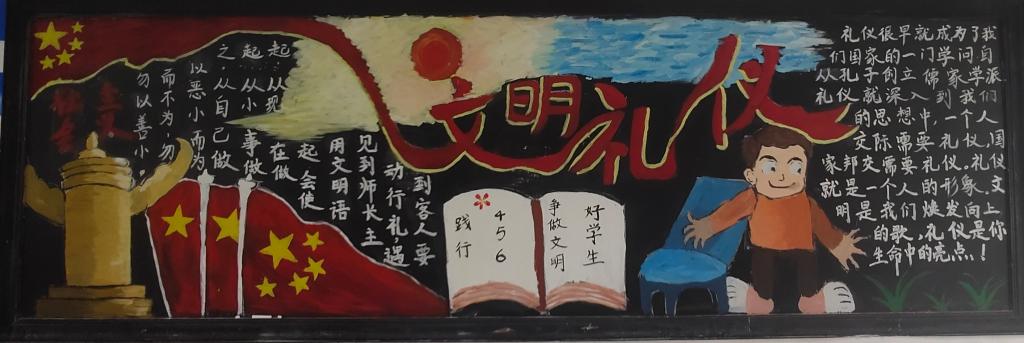 文明礼仪
勿以善小
而不为,勿
以恶小而为
之 从自己做
起 从小事做
起 从现在做
起 会使
用文明语
见到师长主
动行礼,遇
到客人要
践行
456
争做文明
好学生
礼仪很早就成为了我
们国家的一门学问自
从孔子创立儒家学派
礼仪就深入到我们
的思想中,一个人
交际需要礼仪,国
家邦交需要礼仪.礼仪
就是一个人的形象、文
明是我们焕发向上
的歌,礼仪是你
生命中的亮点!